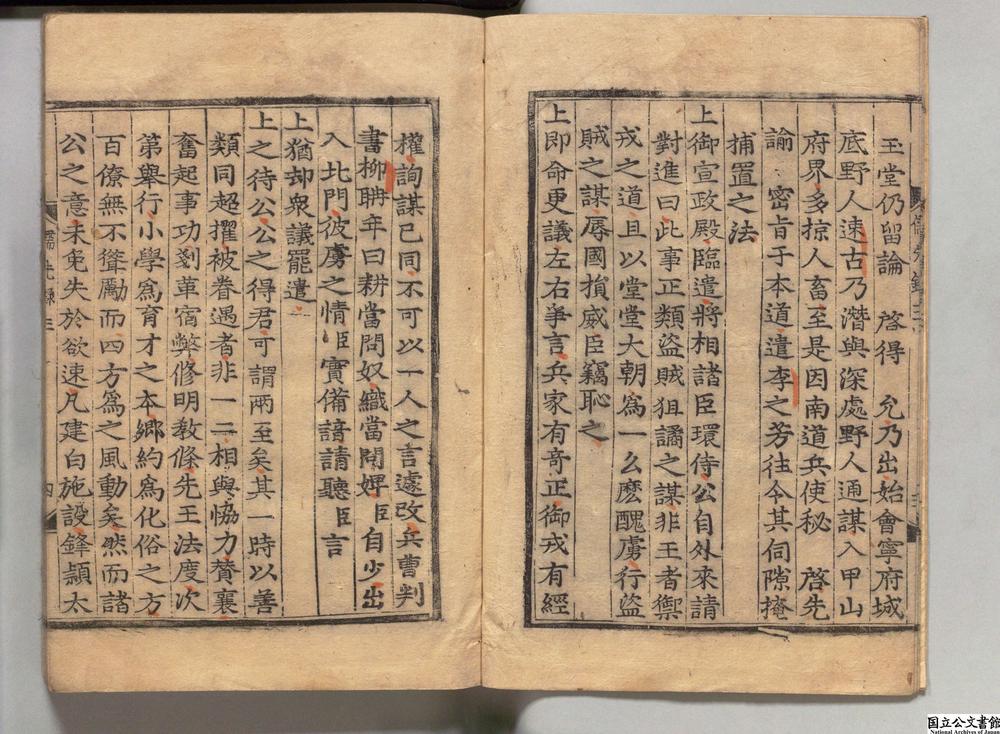 玉堂仍留論 啓得 允乃出始會寧府城
底野人速古乃潛與深處野人通謀入甲山
府界多掠人畜至是因南道兵使秘 啓先
諭 密旨于本道遣李之芳往令其伺隙掩
捕置之法
上御宣政殿臨遣將相諸臣環侍公自外來請
對進曰此事正類盜賊狙譎之謀非王者禦
戎之道且以堂堂大朝爲一么麽醜虜行盜
賊之謀辱國損威臣竊恥之
上即命更議左右爭言兵家有奇正御戎有經
權詢謀已同不可以一人之言遽改兵曹判
書柳聃年曰耕當問奴織當問婢臣自少出
入北門彼虜之情臣實備諳請聽臣言
上猶却衆議罷遣
上之待公公之得君可謂兩至矣其一時以善
類同超擢被眷遇者非一二相與恊力賛襄
奮起事功剗革宿弊修明教條先王法度次
第舉行小學爲育才之本鄕約爲化俗之方
百僚無不聳勵而四方爲之風動矣然而諸
公之意未免失於欲速凡建白施設鋒穎太
儒先錄三
四
国立公文書館
National Archives of Japan